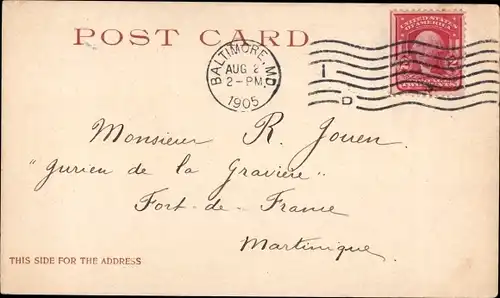 POST CARD
UNITED STATES
OF AMERICA
TWO CENTS
BALTIMORE, MD.
AUG 2
2-PM
1905
1
D
Monsieur R. Jouen.
"Jurien de la Gravière"
Fort-de-France
Martinique.
THIS SIDE FOR THE ADDRESS